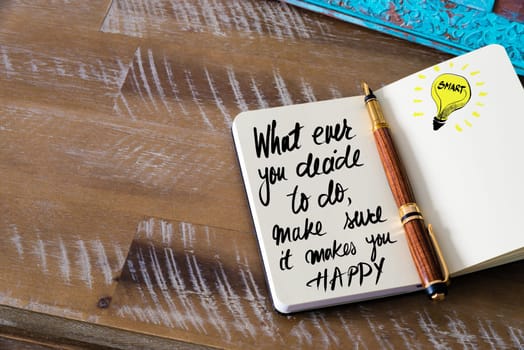 What ever
you decide
to do,
make sure
it makes you
HAPPY
SMART